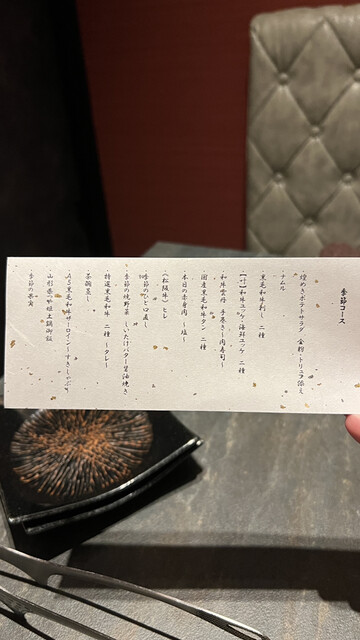 季節コース
・煌めきポテトサラダ 金粉・トリュフ添え
・ナムル
・黒毛和牛刺し 二種
・【叶】和牛ユッケ・海鮮ユッケ 二種
・和牛雲丹 手巻き~肉寿司~
・国産黒毛和牛タン 二種
・本日の赤身肉 ~塩~
・〈松阪牛〉ヒレ
・季節のひと口直し
・季節の焼野菜 しいたけバター醤油焼き
・特選黒毛和牛 二種 ~タレ~
・茶碗蒸し
・A5黒毛和牛サーロイン すきしゃぶ
・山形県つや姫土鍋御飯
・季節の果実